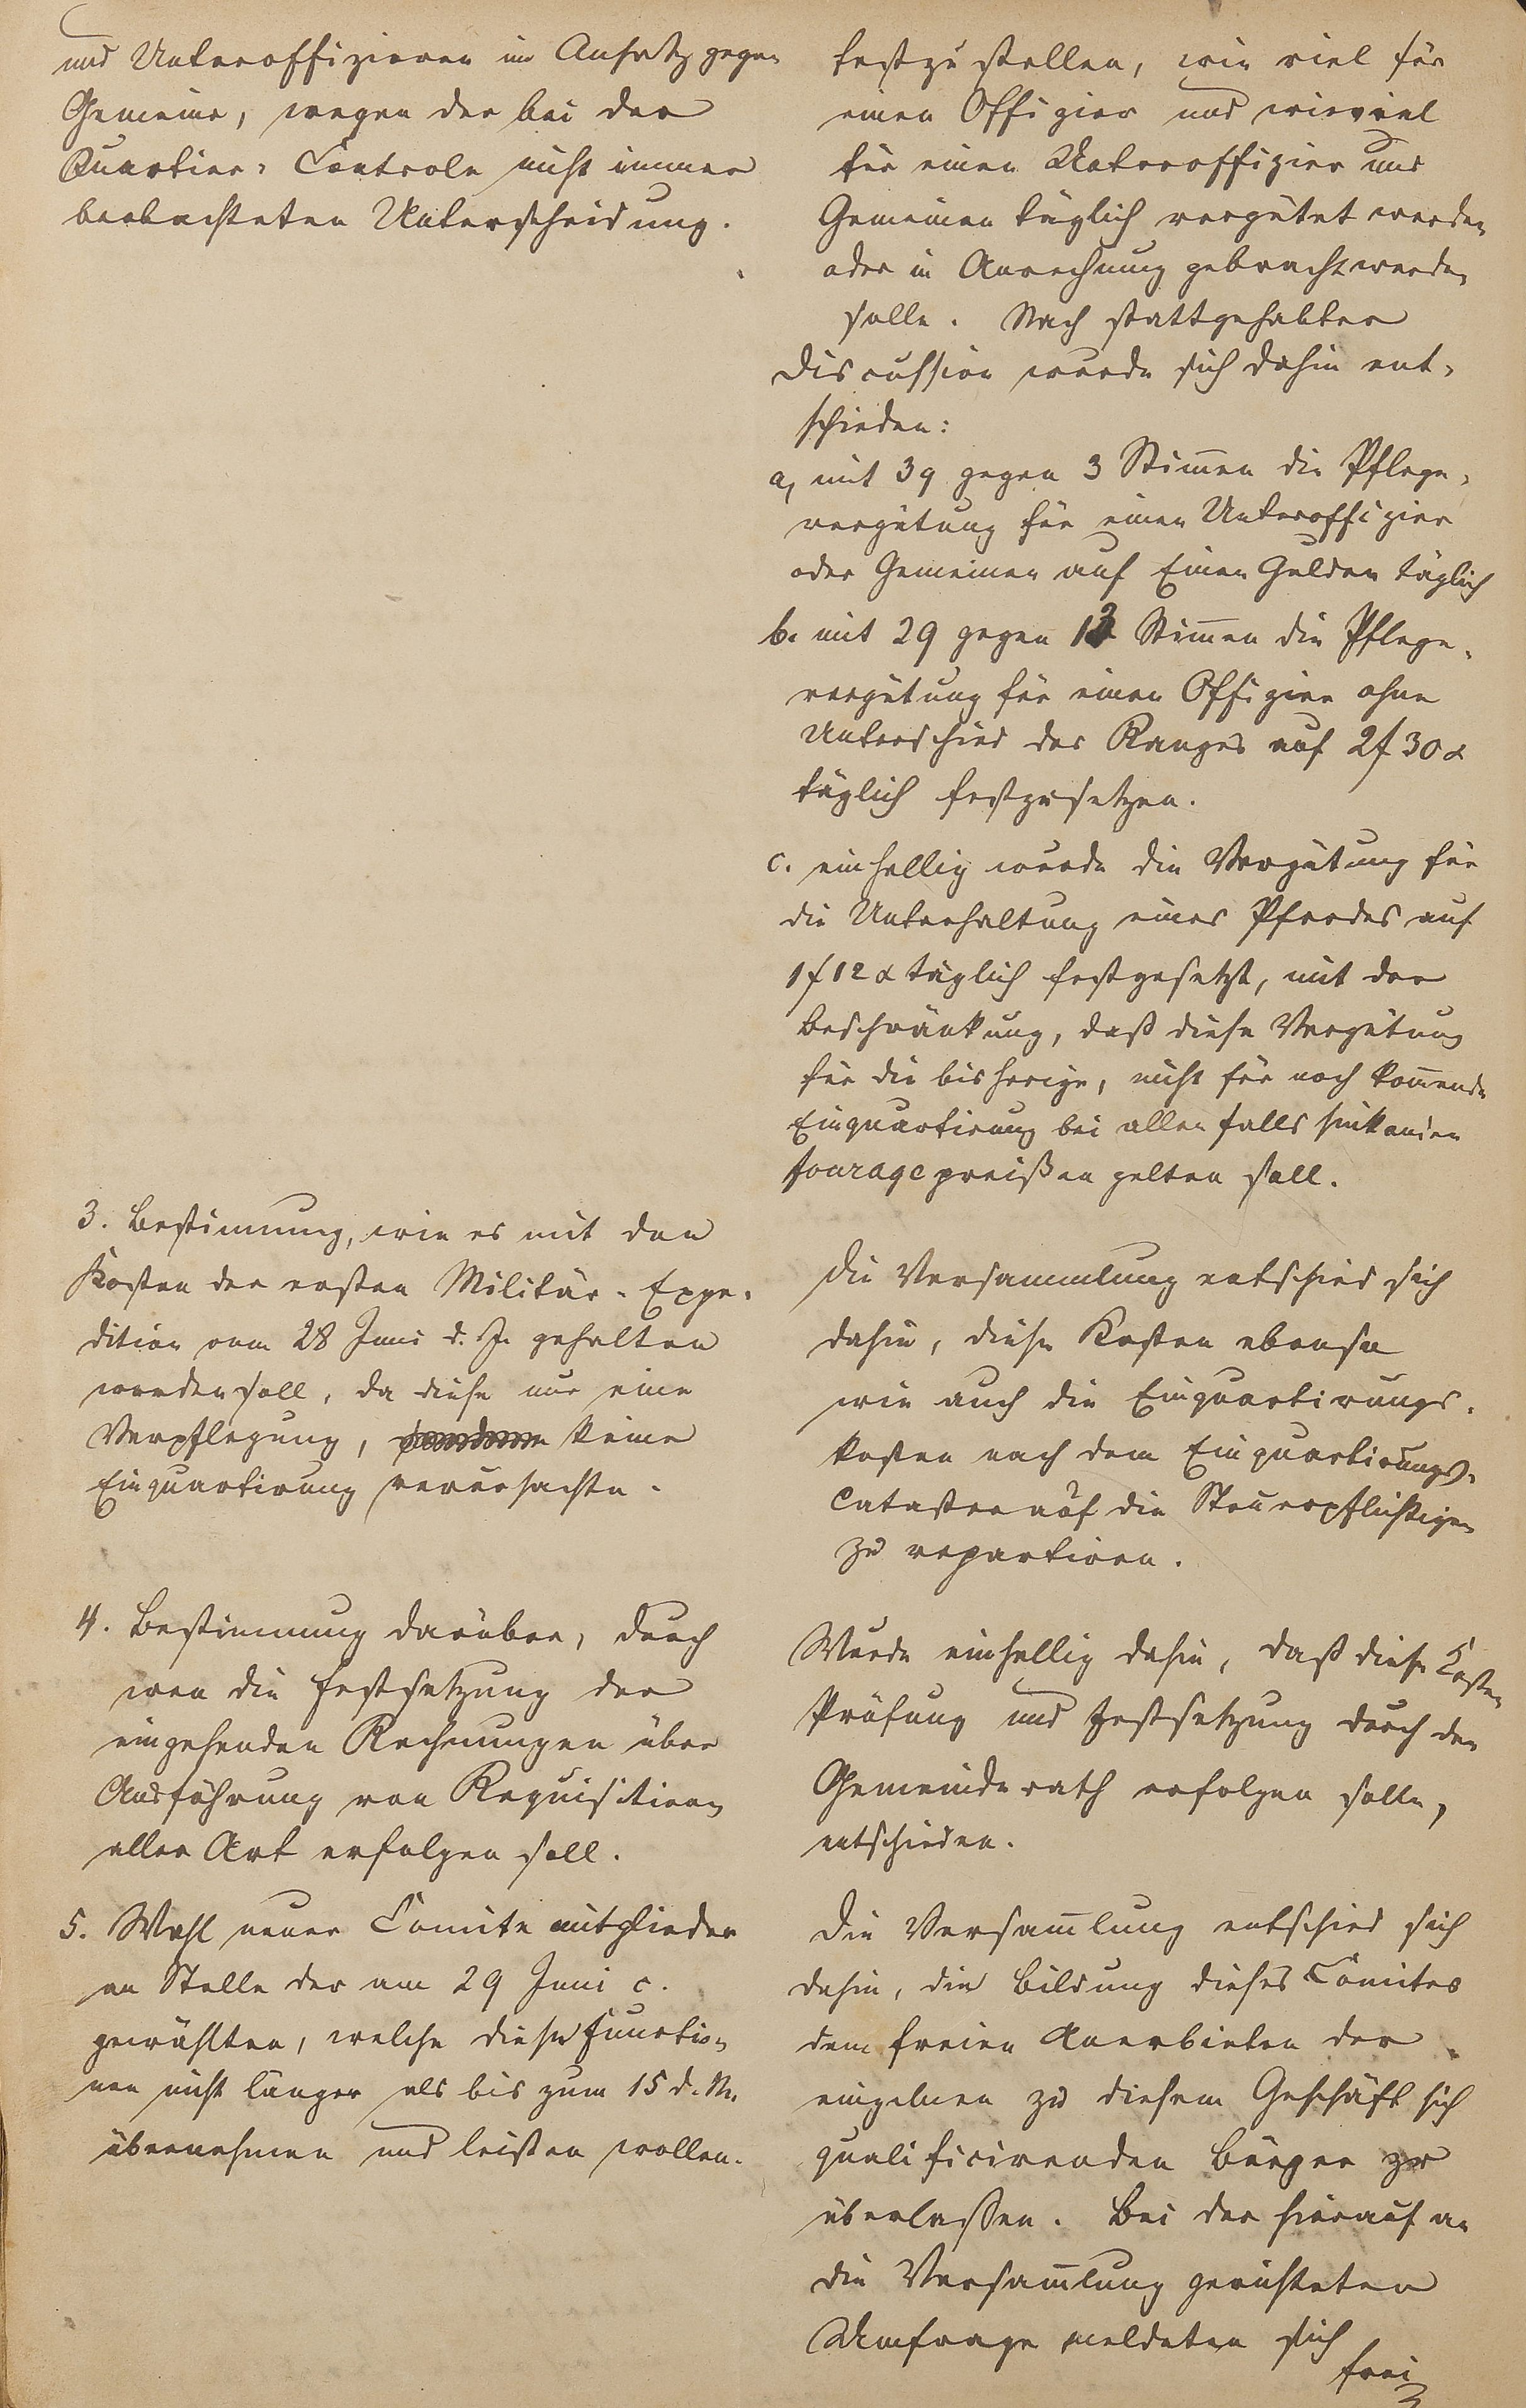 und Unteroffizieren im Ansatz gegen
Gemeine, wegen der bei der
Quartier-Controle nicht immer
beobachteten Unterscheidung.
festzustellen, wie viel für
einen Offizier und wieviel
für einen Unteroffizier und
Gemeinen täglich vergütet werden
oder in Anrechnung gebracht werden
solle. Nach stattgehabter
Discussion wurde sich dahin ent-
schieden:
a, mit 39 gegen 3 Stim̄en die Pflege-
vergütung für einen Unteroffizier
oder Gemeinen auf Einen Gulden täglich
b. mit 29 gegen 13 Stim̄en die Pflege-
vergütung für einen Offizier ohne
Unterschied des Ranges auf 2 f 30 x
täglich festzusetzen.
c. einhellig wurde die Vergütung für
die Unterhaltung eines Pferdes auf
1 f 12 x täglich festgesetzt, mit der
Beschränkung, daß diese Vergütung
für die bisherige, nicht für noch kom̄ende
Einquartirung bei allenfalls sinkenden
Fouragepreißen gelten soll.
3. Bestimmung, wie es mit den
Kosten der ersten Militär-Expe-
dition vom 28 Juni d. J. gehalten
werden soll, da diese nur eine
Verpflegung, keine
Einquartirung verursachte.
Die Versammlung entschied sich
dahin, diese Kosten ebenso
wie auch die Einquartirungs-
kosten nach dem Einquartirungs-
Cataster auf die Steuerpflichtigen
zu repartiren.
4. Bestimmung darüber, durch
wen die Festsetzung der
eingehenden Rechnungen über
Ausführung von Requisitionen
aller Art erfolgen soll.
Wurde einhellig dahin, daß diese Kosten
Prüfung und Festsetzung durch den
Gemeinderath erfolgen solle,
entschieden.
5. Wahl neuer Comite mitglieder
an Stelle der am 29 Juni c.
gewählten, welche diese Functio-
nen nicht länger als bis zum 15 d. M.
übernehmen und leisten wollen.
Die Versam̄lung entschied sich
dahin, die Bildung dieses Comites
dem freien Anerbieten der
einzelnen zu diesem Geschäft sich
qualificirenden Bürger zu
überlassen. Bei der hierauf an
die Versam̄lung gerichteten
Umfrage meldeten sich
frei